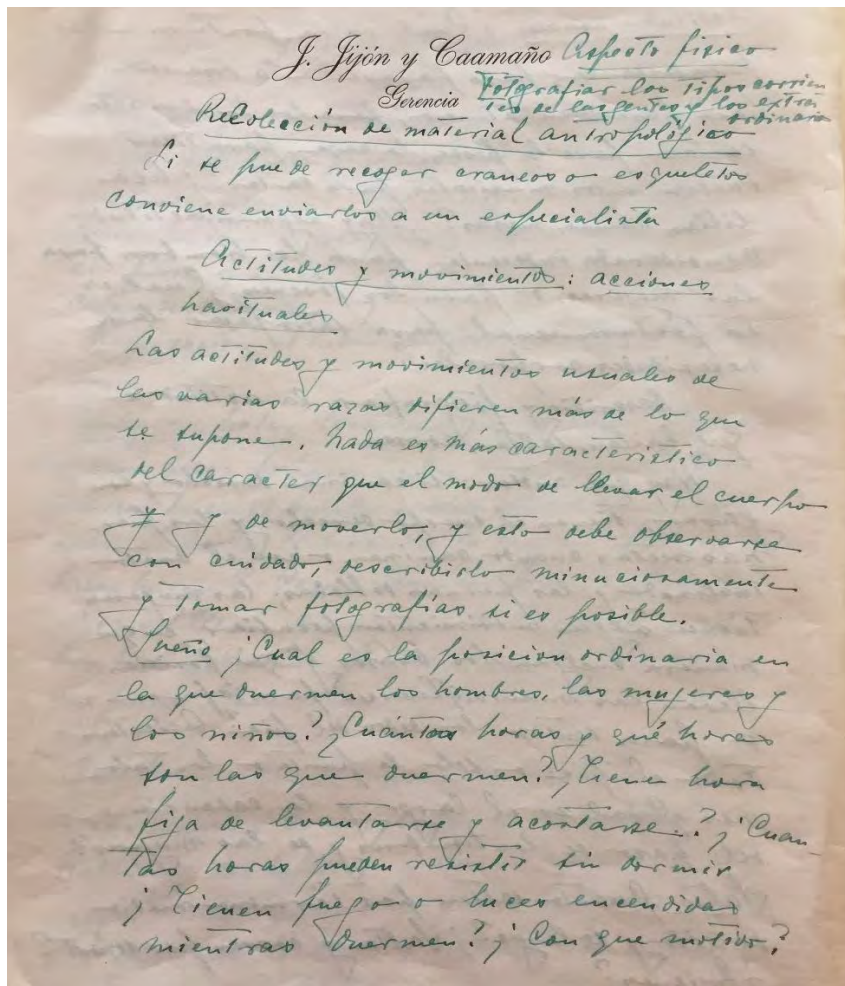 J. Jijón y Caamaño
Gerencia
Aspecto fisico
Fotografiar los tipos corrien
tes de las gentes y los extra
ordinarios
Recolección de material antropológico
Si se puede recoger craneos o esqueletos
conviene enviarlos a un especialista
Actitudes y movimientos: acciones
habituales
Las actitudes y movimientos usuales de
las varias razas difieren más de lo que
se supone. Nada es más caracteristico
del caracter que el modo de llevar el cuerpo
y de moverlo, y esto debe observarse
con cuidado, describirlo minuciosamente
y tomar fotografías si es posible.
Sueño ¿Cual es la posicion ordinaria en
la que duermen los hombres, las mujeres y
los niños? ¿Cuántas horas y qué horas
son las que duermen? ¿Tienen hora
fija de levantarse y acostarse? ¿Cuan-
tas horas pueden resistir sin dormir
¿Tienen fuego o luces encendidas
mientras duermen? ¿Con que motivo?